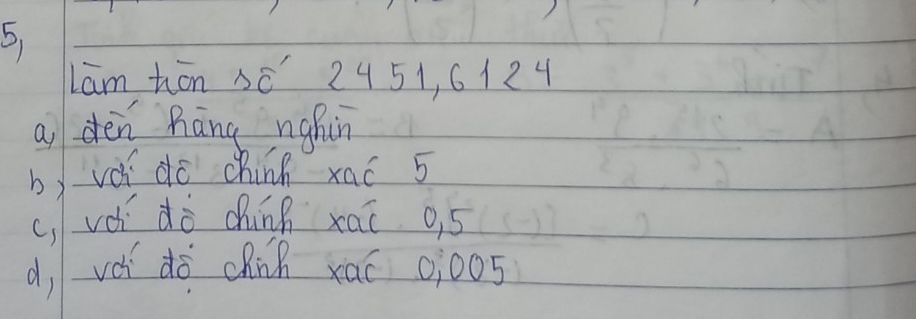 5,
Làm tròn số 2451,6124
a, đến hàng nghìn
b, với độ chính xác 5
c, với độ chính xác 0,5
d, với độ chính xác 0,005